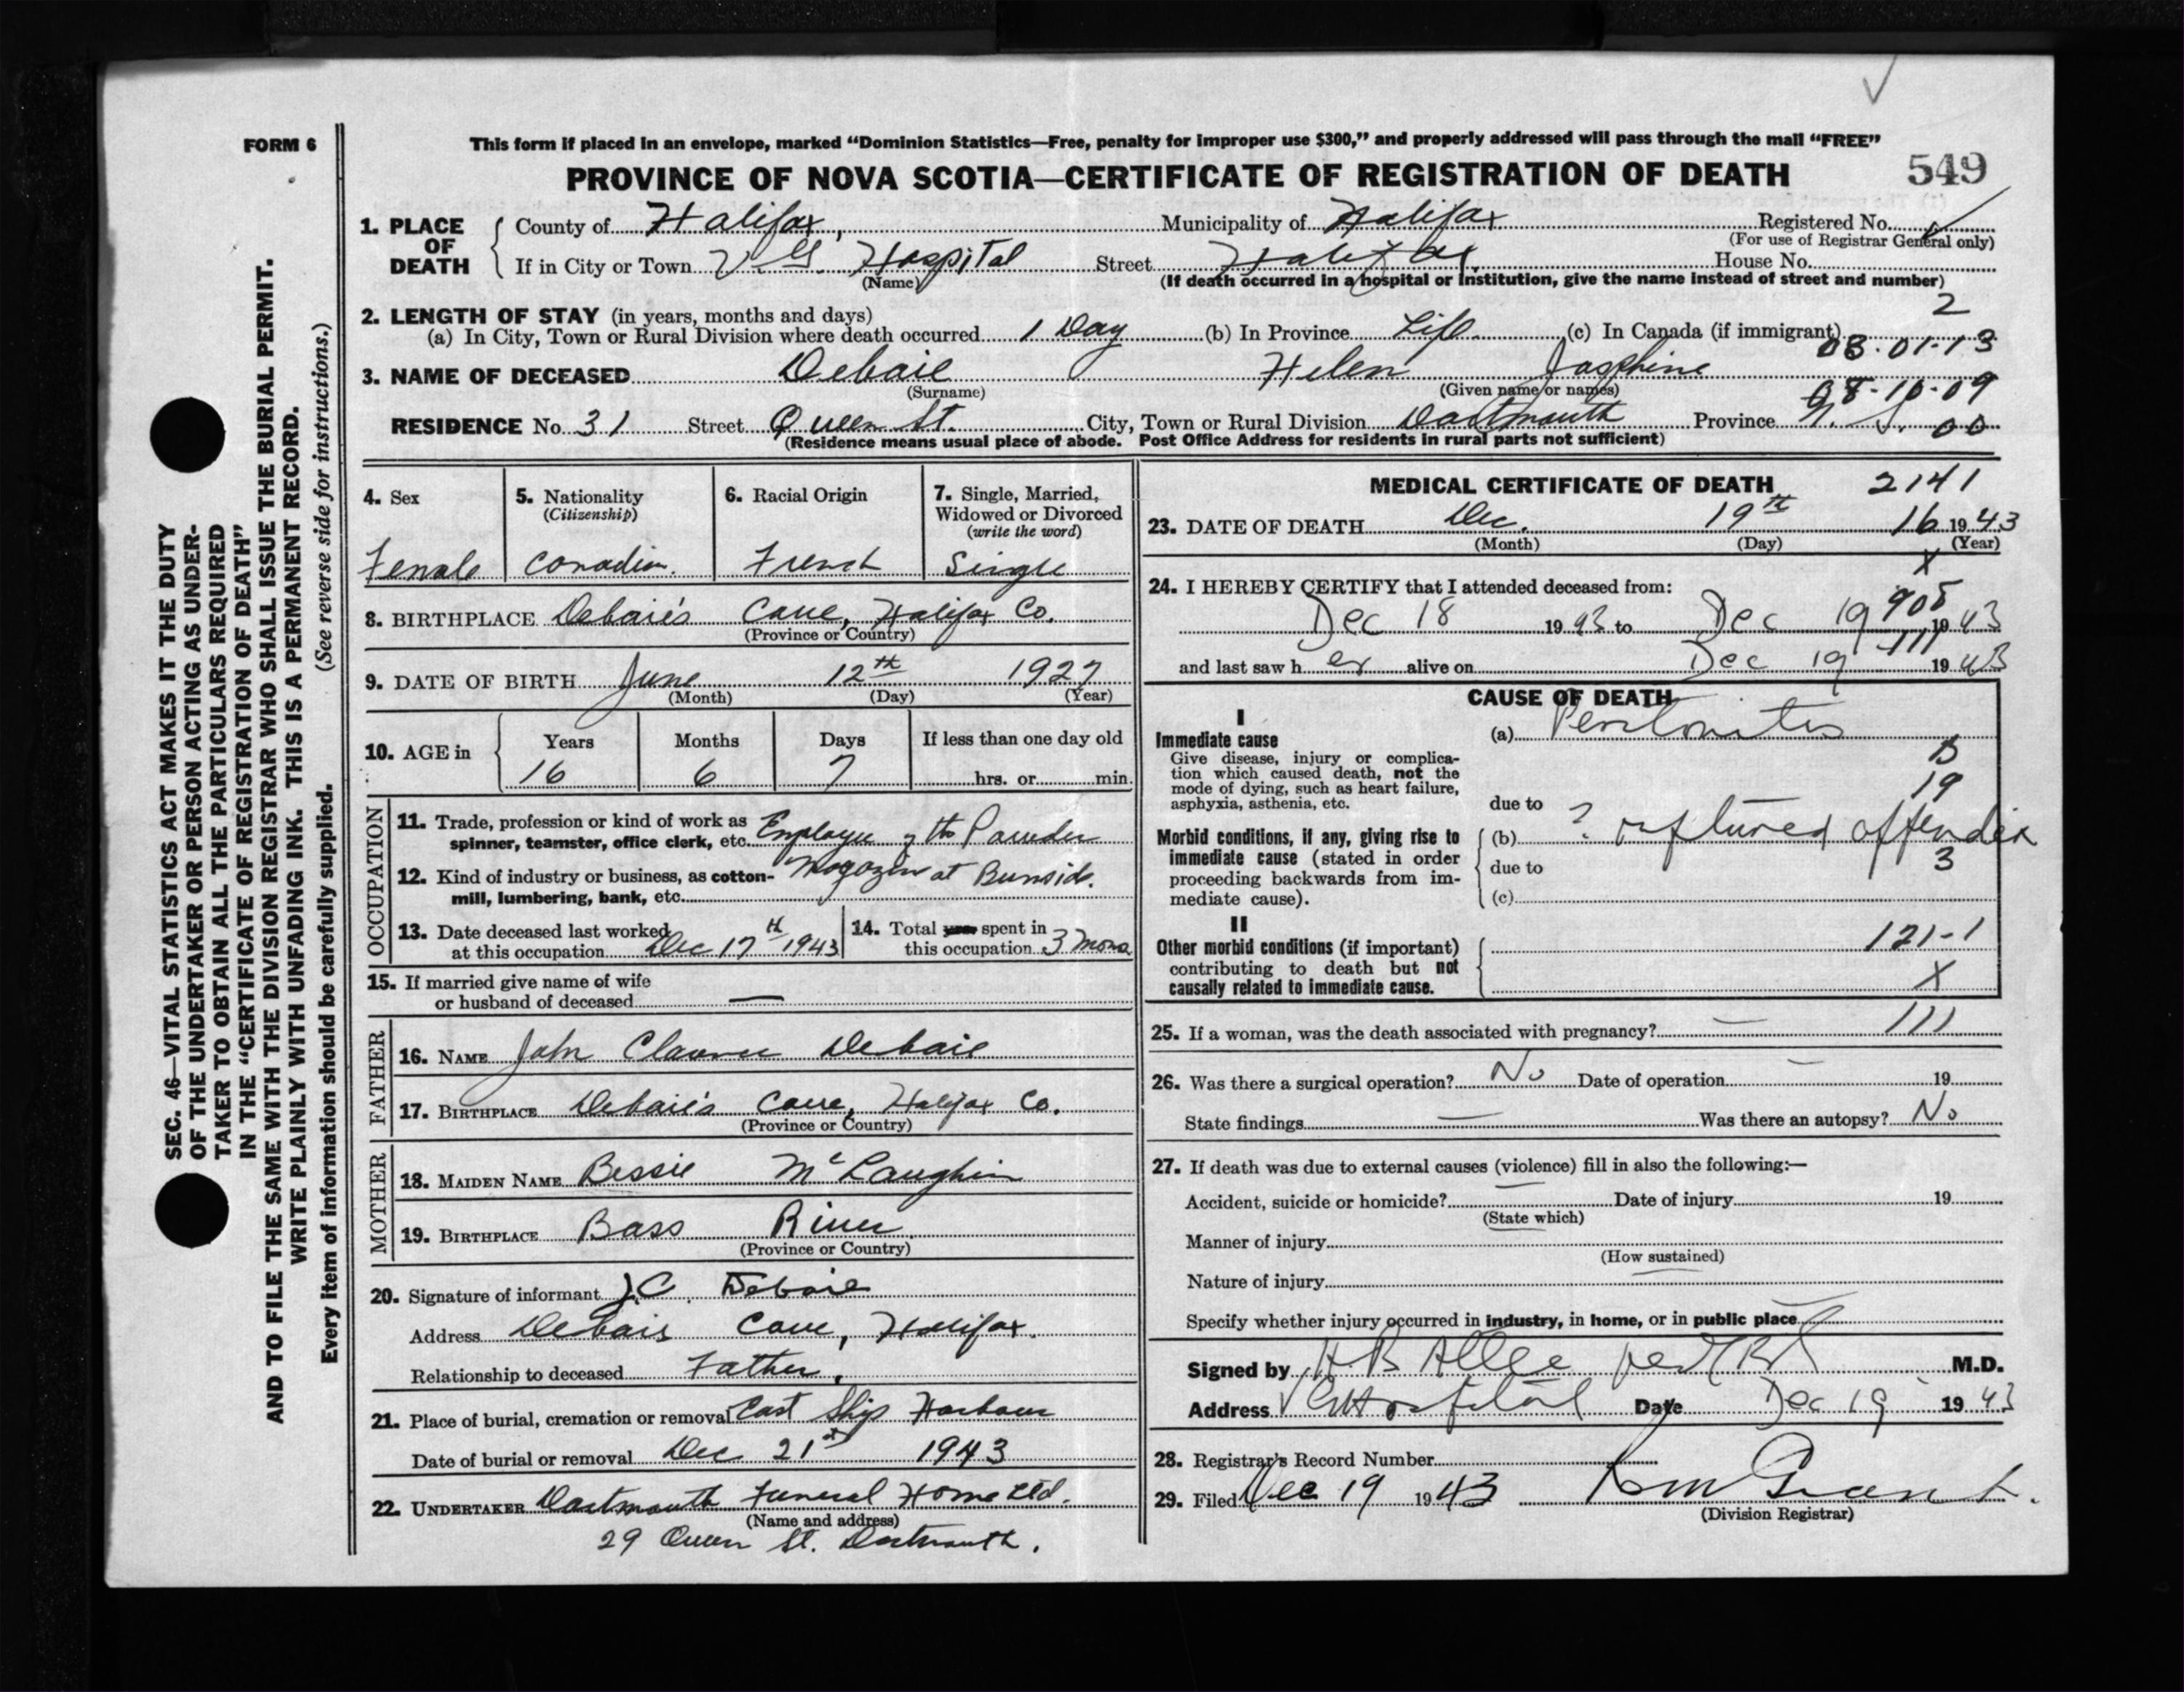 FORM 6
This form if placed in an envelope, marked “Dominion Statistics—Free, penalty for improper use $300,” and properly addressed will pass through the mail “FREE”
PROVINCE OF NOVA SCOTIA—CERTIFICATE OF REGISTRATION OF DEATH 549
SEC. 46—VITAL STATISTICS ACT MAKES IT THE DUTY
OF THE UNDERTAKER OR PERSON ACTING AS UNDER-
TAKER TO OBTAIN ALL THE PARTICULARS REQUIRED
IN THE “CERTIFICATE OF REGISTRATION OF DEATH”
AND TO FILE THE SAME WITH THE DIVISION REGISTRAR WHO SHALL ISSUE THE BURIAL PERMIT.
WRITE PLAINLY WITH UNFADING INK. THIS IS A PERMANENT RECORD.
Every item of information should be carefully supplied. (See reverse side for instructions.)
1. PLACE OF DEATH
County of Halifax, Municipality of Halifax Registered No.
(For use of Registrar General only)
If in City or Town V.G. Hospital Street Halifax House No.
(Name) (If death occurred in a hospital or institution, give the name instead of street and number)
2. LENGTH OF STAY (in years, months and days) 2
(a) In City, Town or Rural Division where death occurred 1 Day (b) In Province Life (c) In Canada (if immigrant)
03-01-13
3. NAME OF DECEASED Debaie Helen Josphine
(Surname) (Given name or names)
08-10-09
RESIDENCE No. 31 Street Queen St. City, Town or Rural Division Dartmouth Province N. S. 00
(Residence means usual place of abode. Post Office Address for residents in rural parts not sufficient)
4. Sex 5. Nationality 6. Racial Origin 7. Single, Married,
(Citizenship) Widowed or Divorced
(write the word)
Female Canadian. French Single
8. BIRTHPLACE Debaie's Cove, Halifax Co.
(Province or Country)
9. DATE OF BIRTH June 12th 1927
(Month) (Day) (Year)
10. AGE in Years Months Days If less than one day old
16 6 7 hrs. or min.
OCCUPATION
11. Trade, profession or kind of work as
spinner, teamster, office clerk, etc. Employee of the Powder
12. Kind of industry or business, as cotton-
mill, lumbering, bank, etc. Magazine at Burnside.
13. Date deceased last worked
at this occupation Dec 17th 1943
14. Total years spent in
this occupation 3 mons
15. If married give name of wife
or husband of deceased —
FATHER
16. NAME John Clarence Debaie
17. BIRTHPLACE Debaie's Cove, Halifax Co.
(Province or Country)
MOTHER
18. MAIDEN NAME Bessie McLaughin
19. BIRTHPLACE Bass River
(Province or Country)
20. Signature of informant J.C. Debaie
Address Debais Cove, Halifax.
Relationship to deceased Father,
21. Place of burial, cremation or removal East Ship Harbour
Date of burial or removal Dec 21st 1943
22. UNDERTAKER Dartmouth Funeral Home Ltd.
(Name and address)
29 Queen St. Dartmouth.
MEDICAL CERTIFICATE OF DEATH 2141
23. DATE OF DEATH Dec. 19th 16 1943
(Month) (Day) (Year)
X
24. I HEREBY CERTIFY that I attended deceased from:
905
Dec 18 1943 to Dec 19 1943
111
and last saw her alive on Dec 19 1943
CAUSE OF DEATH
I
Immediate cause
Give disease, injury or complica-
tion which caused death, not the
mode of dying, such as heart failure,
asphyxia, asthenia, etc.
(a) Peritonitis
19
due to
Morbid conditions, if any, giving rise to
immediate cause (stated in order
proceeding backwards from im-
mediate cause).
(b) ? ruptured appendix
due to 3
(c)
II
Other morbid conditions (if important)
contributing to death but not
causally related to immediate cause.
121-1
X
25. If a woman, was the death associated with pregnancy? — 111
26. Was there a surgical operation? No Date of operation — 19
State findings — Was there an autopsy? No
27. If death was due to external causes (violence) fill in also the following:—
Accident, suicide or homicide? Date of injury 19
(State which)
Manner of injury
(How sustained)
Nature of injury
Specify whether injury occurred in industry, in home, or in public place
Signed by M.D.
Address V G Hospital Date Dec 19 1943
28. Registrar's Record Number
29. Filed Dec 19 1943 Grant.
(Division Registrar)